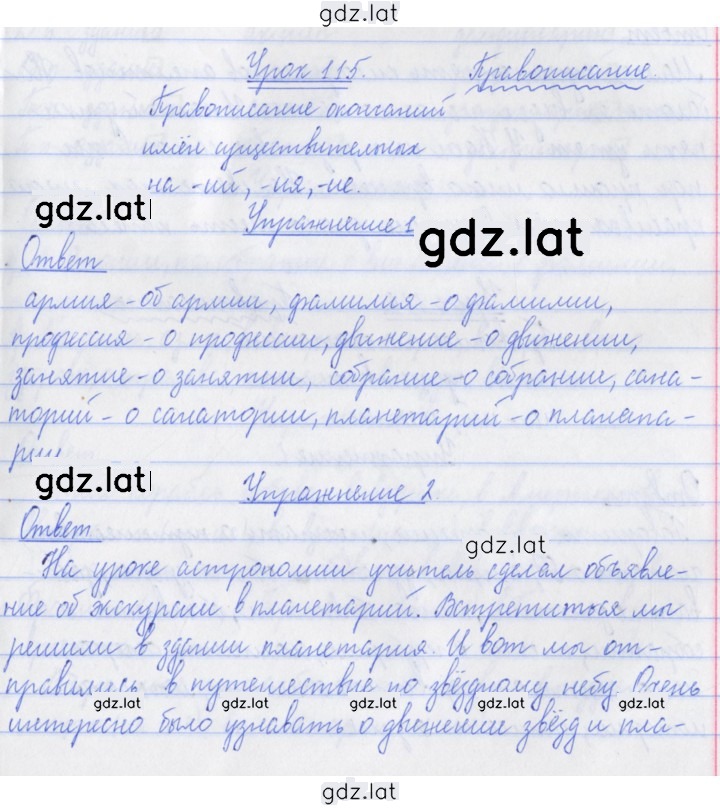 gdz.lat
Урок 115. Правописание.
Правописание окончаний
имён существительных
на -ий, -ия, -ие.
gdz.lat
Упражнение 1
gdz.lat
Ответ
армия - об армии, фамилия - о фамилии,
профессия - о профессии, движение - о движении,
занятие - о занятии, собрание - о собрании, сана-
торий - о санатории, планетарий - о планета-
рии
gdz.lat
Упражнение 2
Ответ
gdz.lat
На уроке астрономии учитель сделал объявле-
ние об экскурсии в планетарий. Встретиться мы
решили в здании планетария. И вот мы от-
правились в путешествие по звёздному небу. Очень
gdz.lat gdz.lat gdz.lat gdz.lat gdz.lat
интересно было узнавать о движении звёзд и пла-
gdz.lat